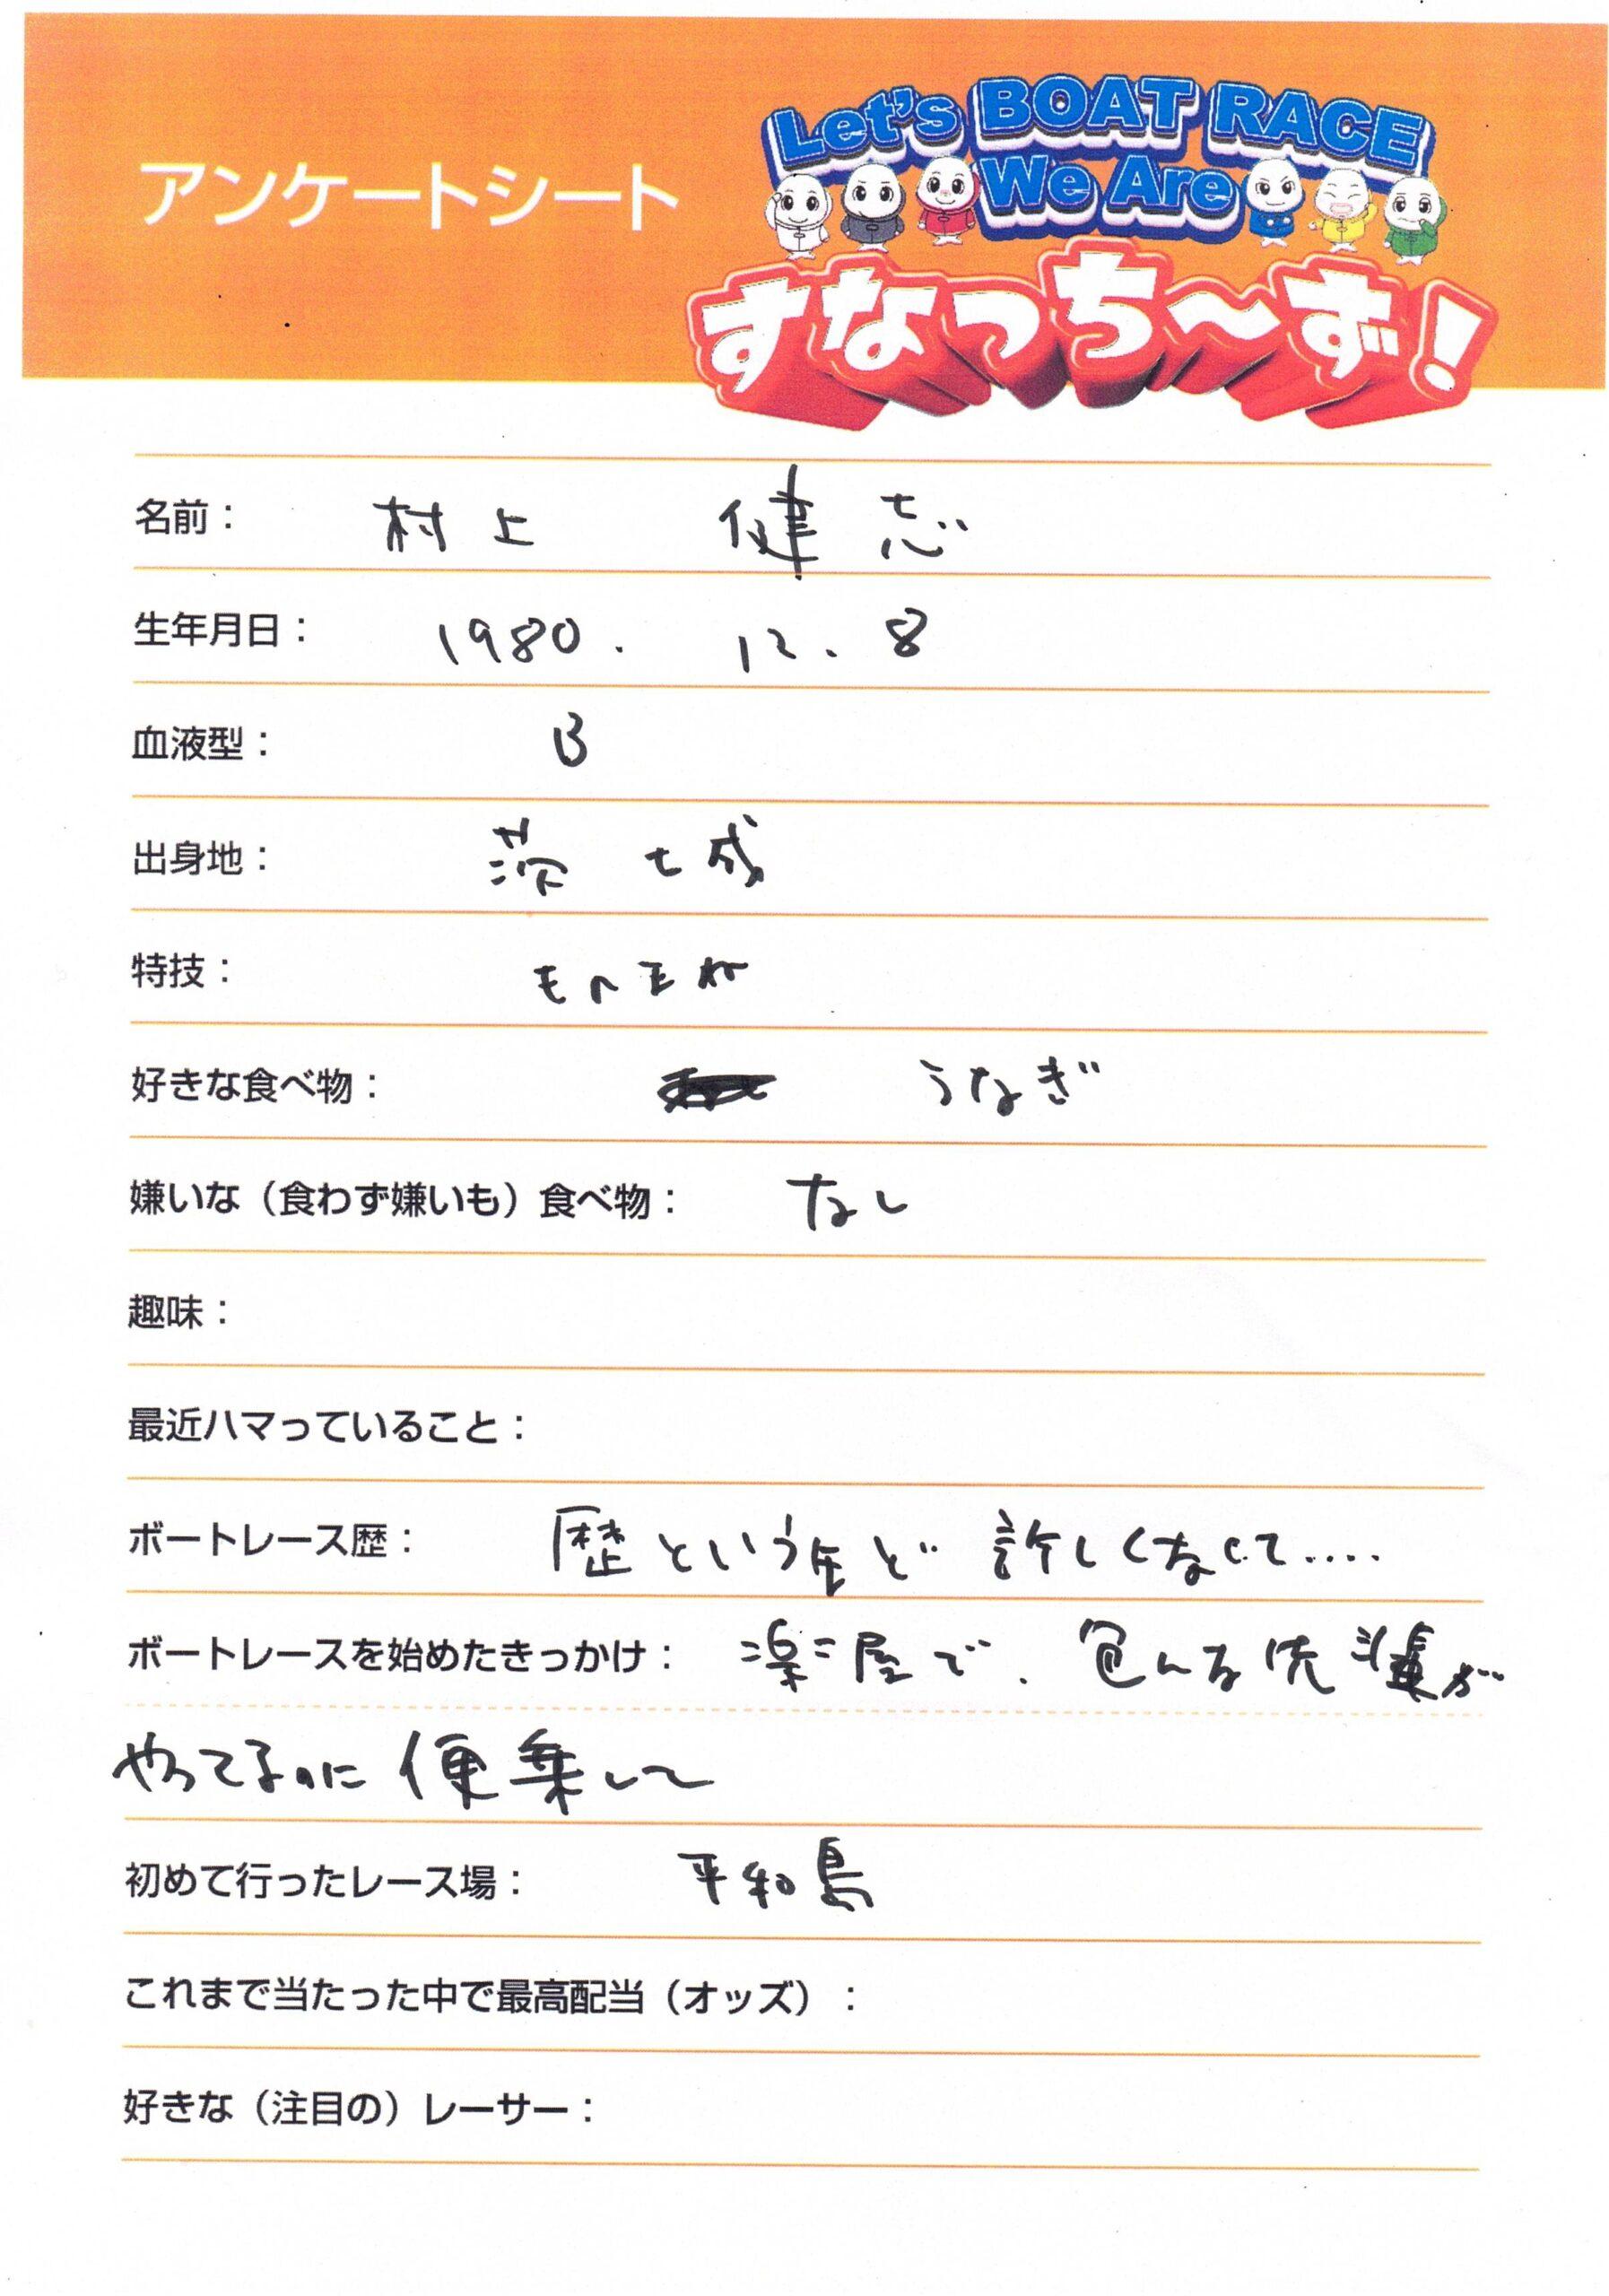 アンケートシート
Let's BOAT RACE
We Are
すなっち〜ず!
名前： 村上 健志
生年月日： 1980. 12. 8
血液型： B
出身地： 茨城
特技： ものまね
好きな食べ物： うなぎ
嫌いな（食わず嫌いも）食べ物： なし
趣味：
最近ハマっていること：
ボートレース歴： 歴というほど 詳しくなくて....
ボートレースを始めたきっかけ： 楽屋で、色んな先輩が
やってるのに便乗して
初めて行ったレース場： 平和島
これまで当たった中で最高配当（オッズ）：
好きな（注目の）レーサー：